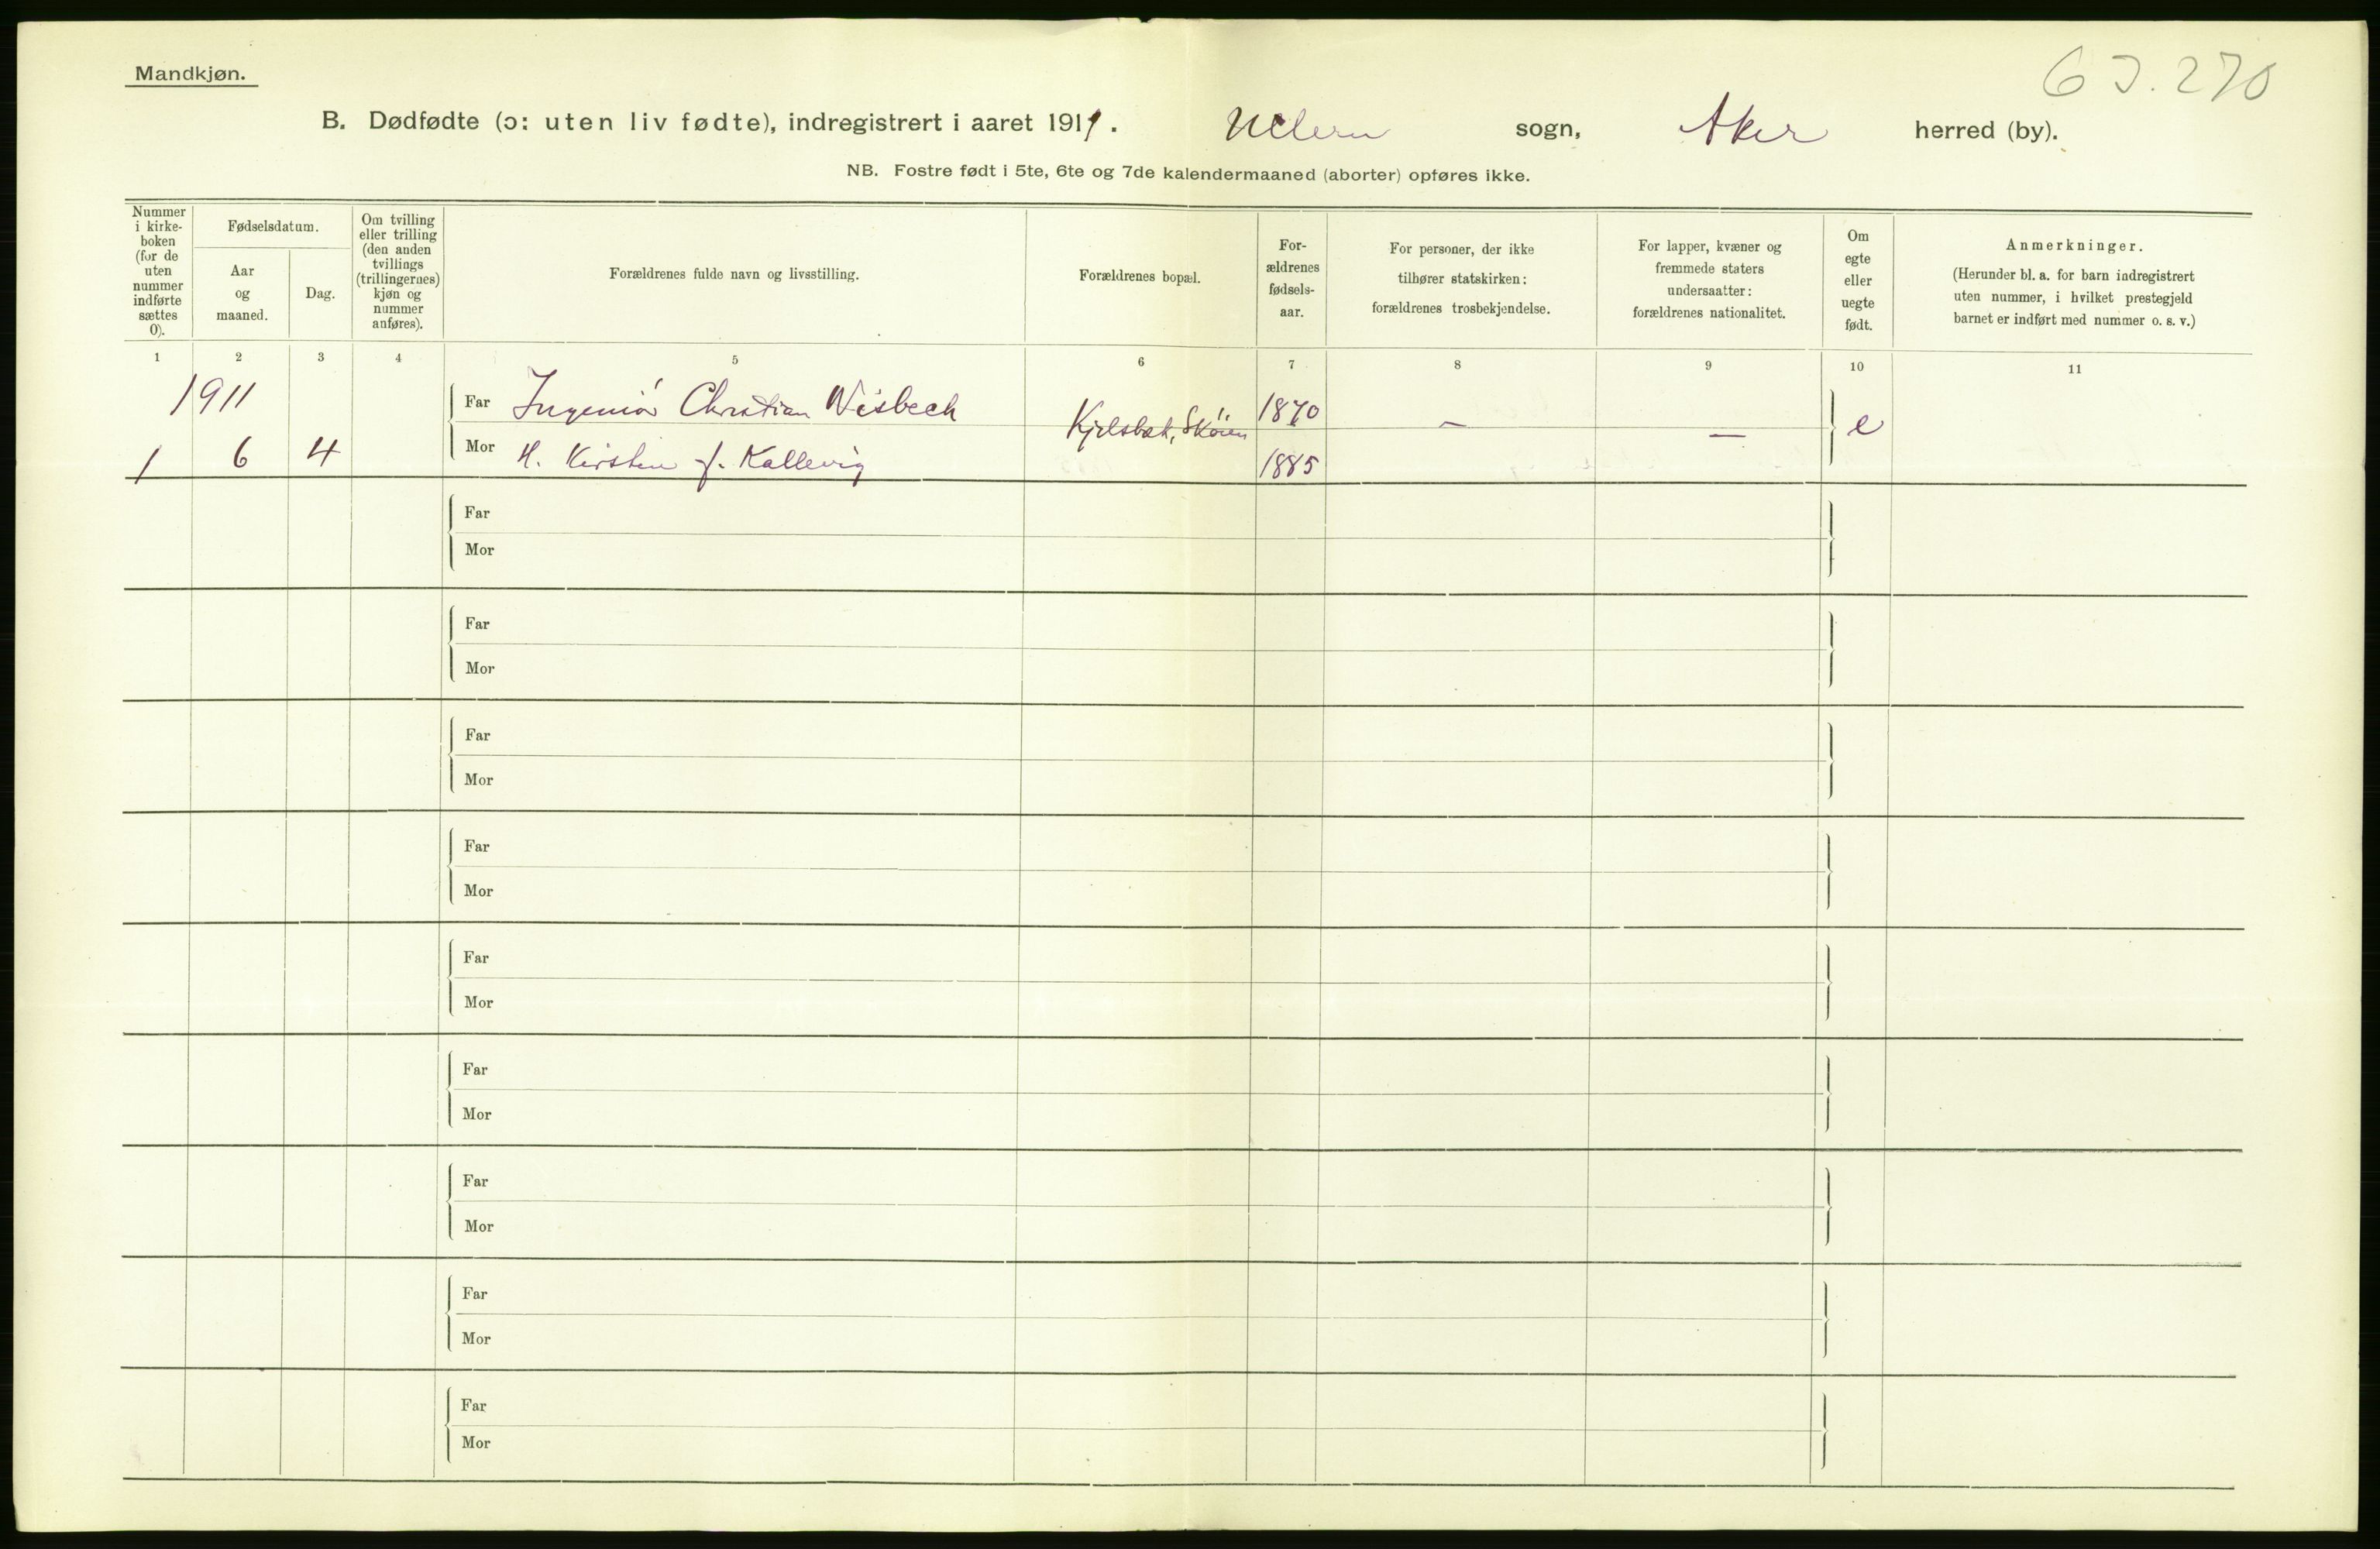 Mandkjøn.
63.270
B. Dødfødte (ɔ: uten liv fødte), indregistrert i aaret 1911. Ullern sogn, Aker herred (by).
NB. Fostre født i 5te, 6te og 7de kalendermaaned (aborter) opføres ikke.
Nummer
i kirke-
boken
(for de
uten
nummer
indførte
sættes
0).
Fødselsdatum.
Aar
og
maaned.
Dag.
Om tvilling
eller trilling
(den anden
tvillings
(trillingernes)
kjøn og
nummer
anføres).
Forældrenes fulde navn og livsstilling.
Forældrenes bopæl.
For-
ældrenes
fødsels-
aar.
For personer, der ikke
tilhører statskirken:
forældrenes trosbekjendelse.
For lapper, kvæner og
fremmede staters
undersaatter:
forældrenes nationalitet.
Om
egte
eller
uegte
født.
Anmerkninger.
(Herunder bl. a. for barn indregistrert
uten nummer, i hvilket prestegjeld
barnet er indført med nummer o. s. v.)
1 2 3 4 5 6 7 8 9 10 11
1911
Far Ingeniør Christian Wisbech 1870
Kjelsbæk, Skøien — — e
1 6 4 Mor H. Kirsten f. Kallevig 1885
Far
Mor
Far
Mor
Far
Mor
Far
Mor
Far
Mor
Far
Mor
Far
Mor
Far
Mor
Far
Mor